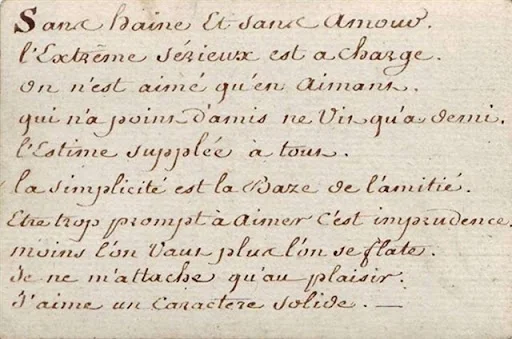 Sans haine Et sans Amour.
l'Extrême sérieux est a charge.
on n'est aimé qu'en Aimant.
qui n'a point d'amis ne Vit qu'a demi.
l'Estime supplée à tout.
la simplicité est la Baze de l'amitié.
Etre trop prompt à Aimer c'est imprudence.
moins l'on Vaut plus l'on se flate.
Je ne m'attache qu'au plaisir.
J'aime un Caractere solide. —